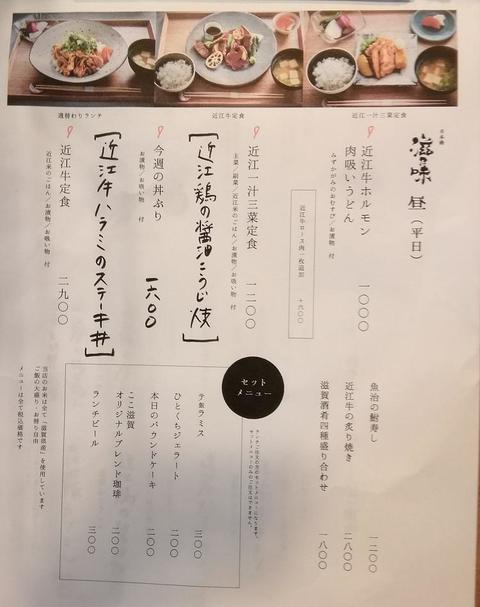 週替わりランチ
近江牛定食
近江一汁三菜定食
日本橋
滋乃味 昼（平日）
近江牛ホルモン
肉吸いうどん
みずかがみのおむすび／お漬物 付
一〇〇〇
近江牛ロース肉一枚追加 +六〇〇
近江一汁三菜定食
主菜／副菜／近江米のごはん／お漬物／お吸い物 付
一二〇〇
[近江鶏の醤油こうじ焼]
今週の丼ぶり
お漬物／お吸い物 付
一六〇〇
[近江牛ハラミのステーキ丼]
近江牛定食
近江米のごはん／お漬物／お吸い物 付
二九〇〇
魚治の鮒寿し
一二〇〇
近江牛の炙り焼き
二八〇〇
滋賀酒肴四種盛り合わせ
一八〇〇
セット
メニュー
ランチご注文の方のセットメニューになります。
セットメニューのみのご注文はできません。
テ飯ラミス
三〇〇
ひとくちジェラート
二〇〇
本日のパウンドケーキ
二〇〇
ここ滋賀
オリジナルブレンド珈琲
二〇〇
ランチビール
三〇〇
当店のお米は全て「滋賀県産」を使用しています
ご飯の大盛り・お替り自由
メニューは全て税込価格です